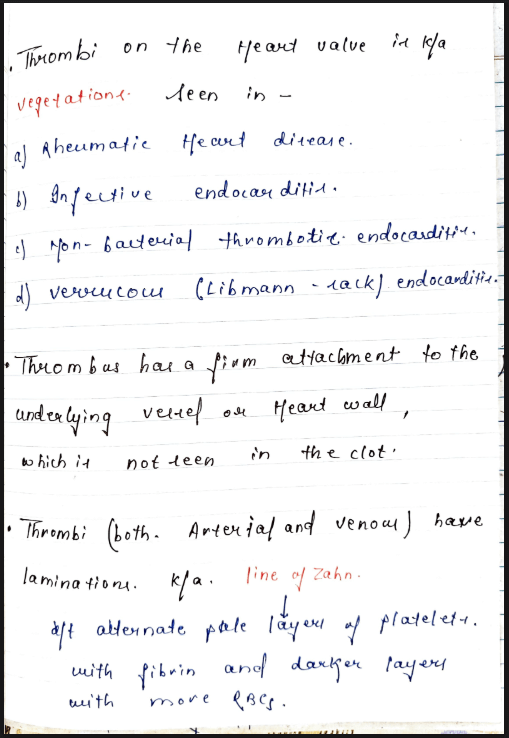 . Thrombi on the Heart value is k/a
vegetations. seen in -
a) Rheumatic Heart disease.
b) Infective endocarditis.
c) Non-bacterial thrombotic endocarditis.
d) verrucous (Libmann - sack) endocarditis.
• Thrombus has a firm attachment to the
underlying vessel or Heart wall,
which is not seen in the clot.
• Thrombi (both. Arterial and venous) have
laminations. k/a. line of Zahn.
↓
d/t alternate pale layers of platelets.
with fibrin and darker layers
with more RBCs.